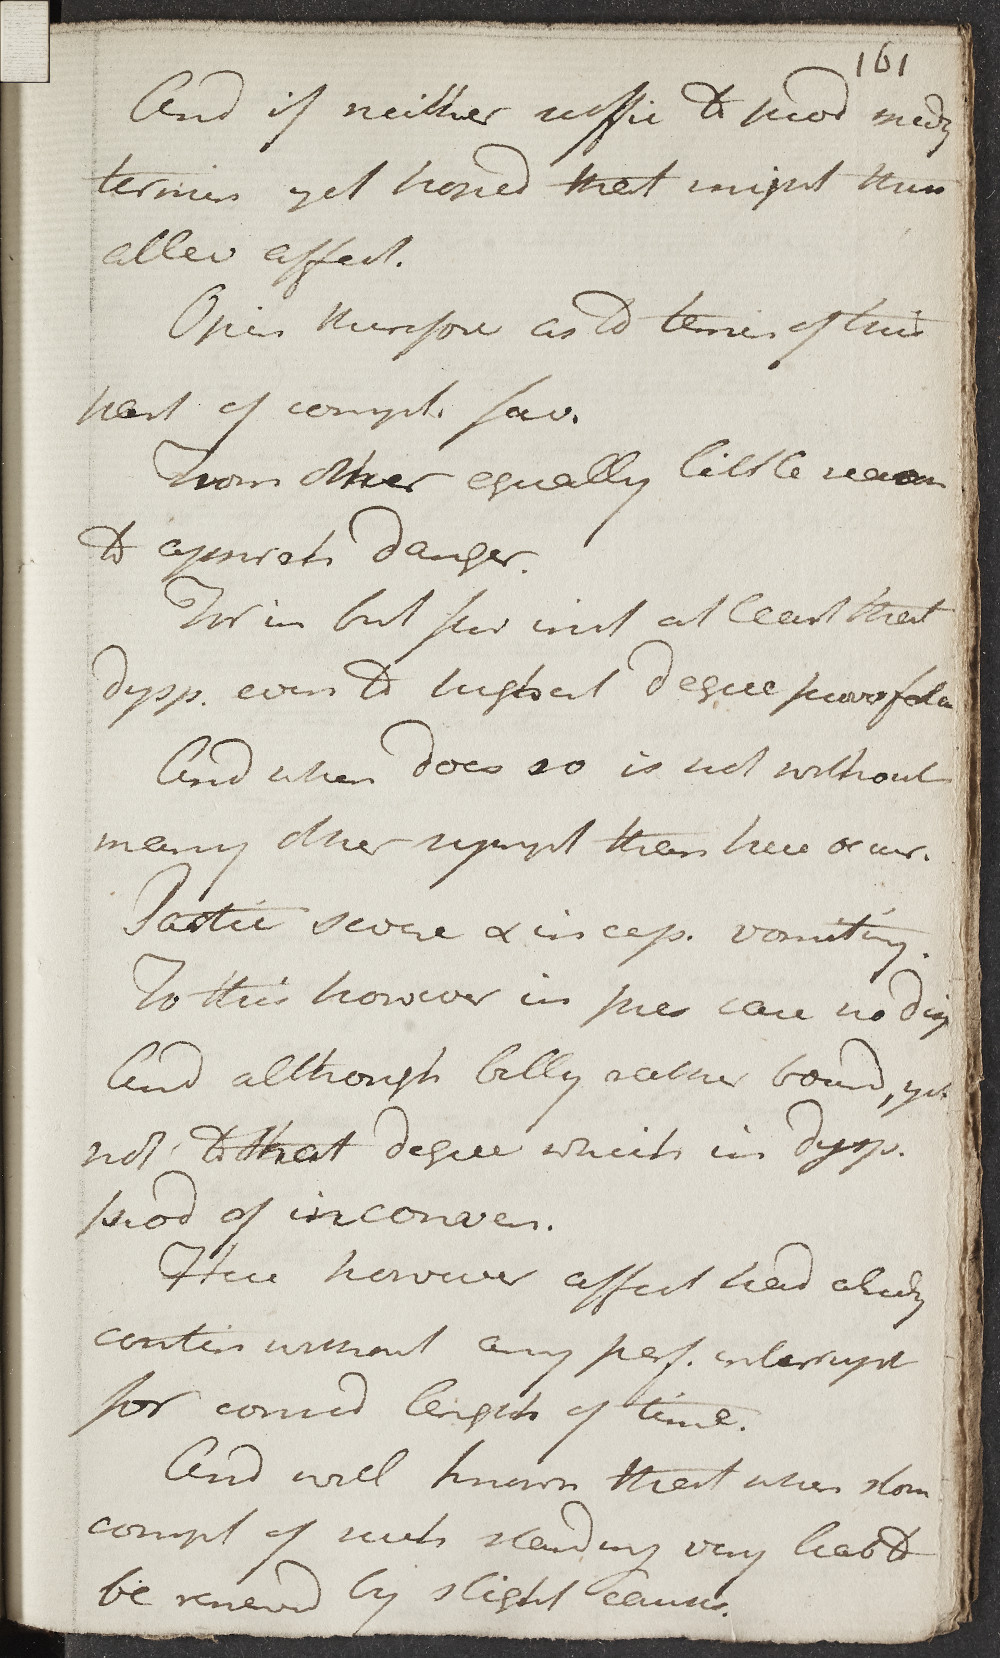 161
And if neither suffic to prod
termin yet hoped that might thus
allev affect.
Opin therefore as to termin of this
part of compt. fav.
From other equally little reason
to appreh danger.
For in but few inst at least that
dysp. even to highest degree prove fatal
And when does so is not without
many other sympt than here occur.
Partic severe & incep. vomiting.
To this however in pres case no disp
And although belly rather bound, yet
not to that degree which in dysp.
prod of inconven.
Here however affect had already
contin without any perf. interrupt
for consid length of time.
And well known that when stom
compt of such standing very liab to
be renewed by slight causes.